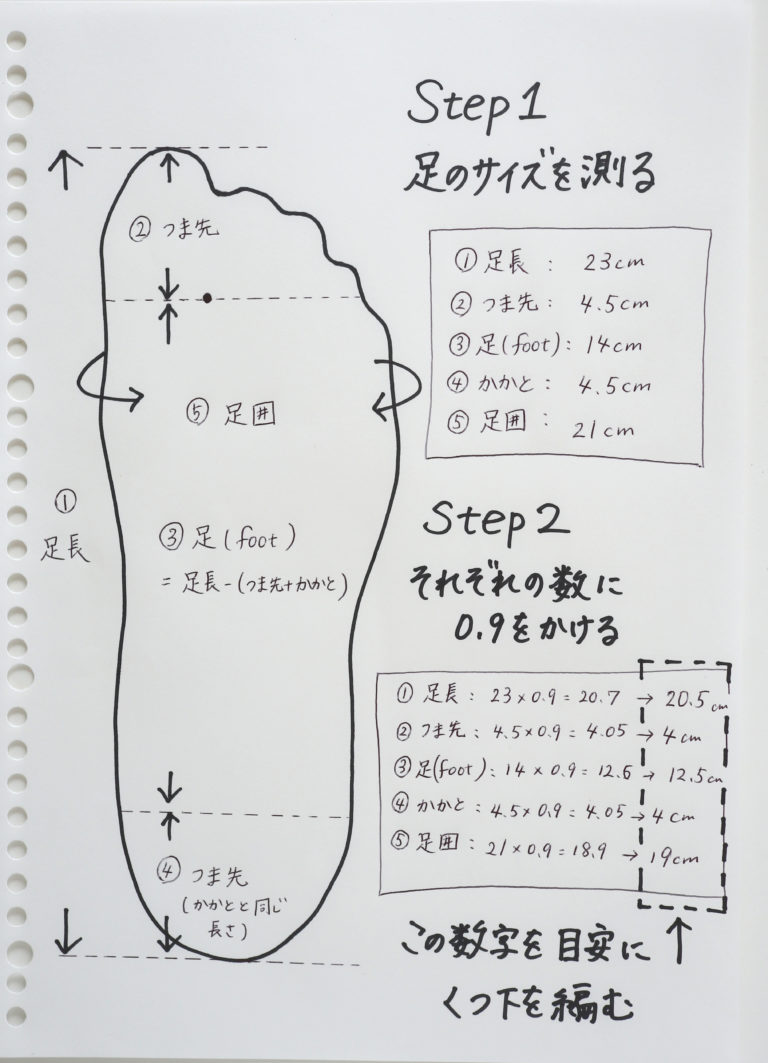 Step1
足のサイズを測る
① 足長 : 23cm
② つま先 : 4.5cm
③ 足(foot) : 14cm
④ かかと : 4.5cm
⑤ 足囲 : 21cm
② つま先
⑤ 足囲
①
足長
③ 足(foot)
= 足長-(つま先+かかと)
④ つま先
(かかとと同じ
長さ)
Step2
それぞれの数に
0.9をかける
① 足長 : 23×0.9=20.7 → 20.5cm
② つま先 : 4.5×0.9=4.05 → 4cm
③ 足(foot) : 14×0.9=12.6 → 12.5cm
④ かかと : 4.5×0.9=4.05 → 4cm
⑤ 足囲 : 21×0.9=18.9 → 19cm
この数字を目安に
くつ下を編む